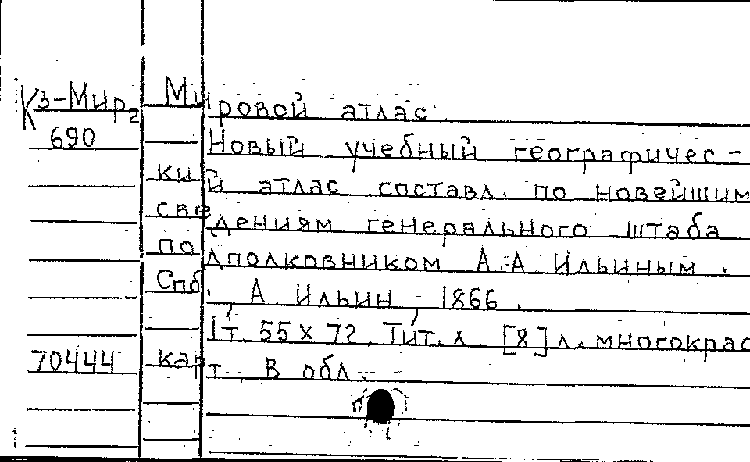 К3-Мир2 Мировой атлас
690 Новый учебный географичес-
кий атлас составл. по новейшим
сведениям генерального штаба
подполковником А.А Ильиным.
Спб., А Ильин, 1866.
1т. 55х72. Тит. л [8] л. многокрас
70444 карт. В обл.